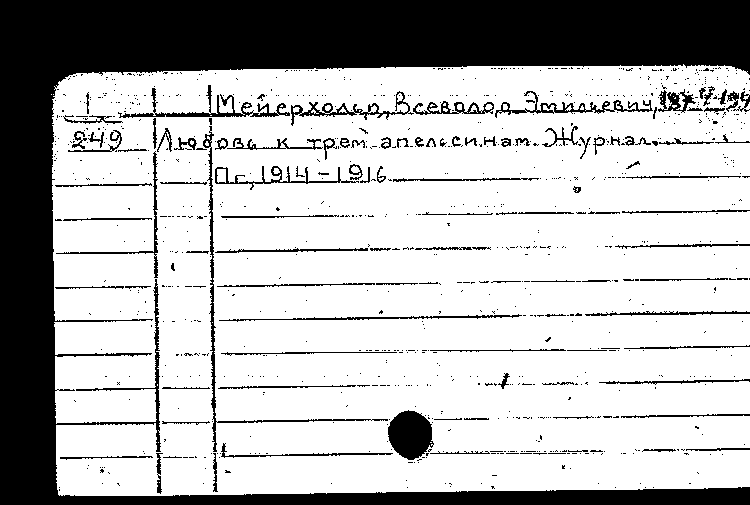 1 Мейерхольд, Всеволод Эмильевич,
249 Любовь к трем апельсинам. Журнал...
Пг, 1914-1916